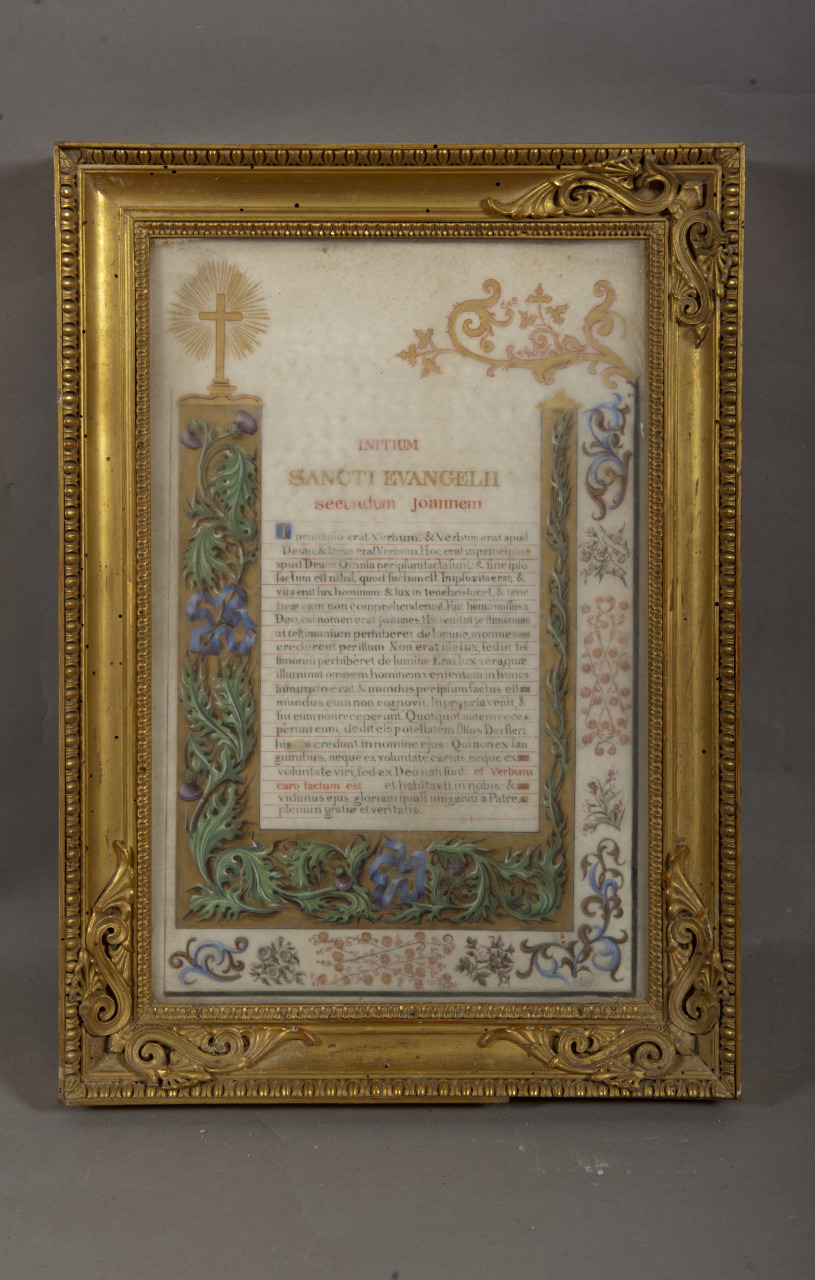 INITIUM
SANCTI EVANGELII
secundum Joannem
In principio erat Verbum, & Verbum erat apud
Deum, & Deus erat Verbum. Hoc erat in principio
apud Deum. Omnia per ipsum facta sunt: & sine ipso
factum est nihil, quod factum est. In ipso vita erat, &
vita erat lux hominum: & lux in tenebris lucet, & tene
bræ eam non comprehenderunt. Fuit homo missus a
Deo, cui nomen erat Joannes. Hic venit in testimonium
ut testimonium perhiberet de lumine, ut omnes
crederent per illum. Non erat ille lux, sed ut tes
timonium perhiberet de lumine. Erat lux vera, quæ
illuminat omnem hominem venientem in hunc
mundo erat, & mundus per ipsum factus est
mundus eum non cognovit. In propria venit, &
sui eum non receperunt. Quotquot autem rece
perunt eum, dedit eis potestatem filios Dei fieri
his qui credunt in nomine ejus: Qui non ex san
guinibus, neque ex voluntate carnis, neque ex
voluntate viri, sed ex Deo nati sunt: et Verbum
caro factum est et habitavit in nobis: &
vidimus ejus, gloriam quasi unigeniti a Patre,
plenum gratiæ et veritatis.